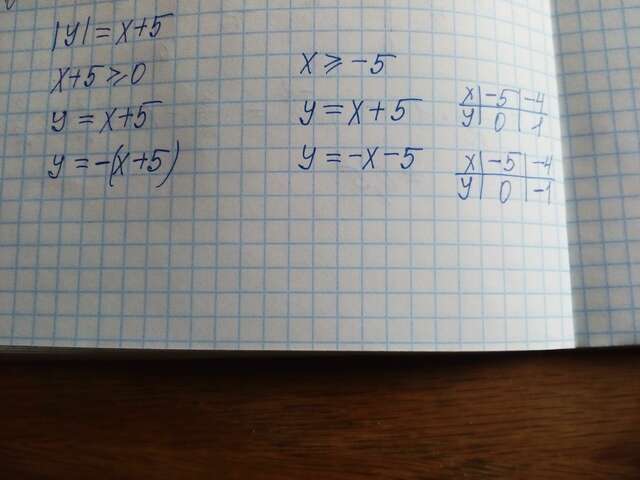 |y| = x+5
x+5 ≥ 0
y = x+5
y = -(x+5)
x ≥ -5
y = x+5
y = -x-5
x | -5 | -4
y | 0 | 1
x | -5 | -4
y | 0 | -1